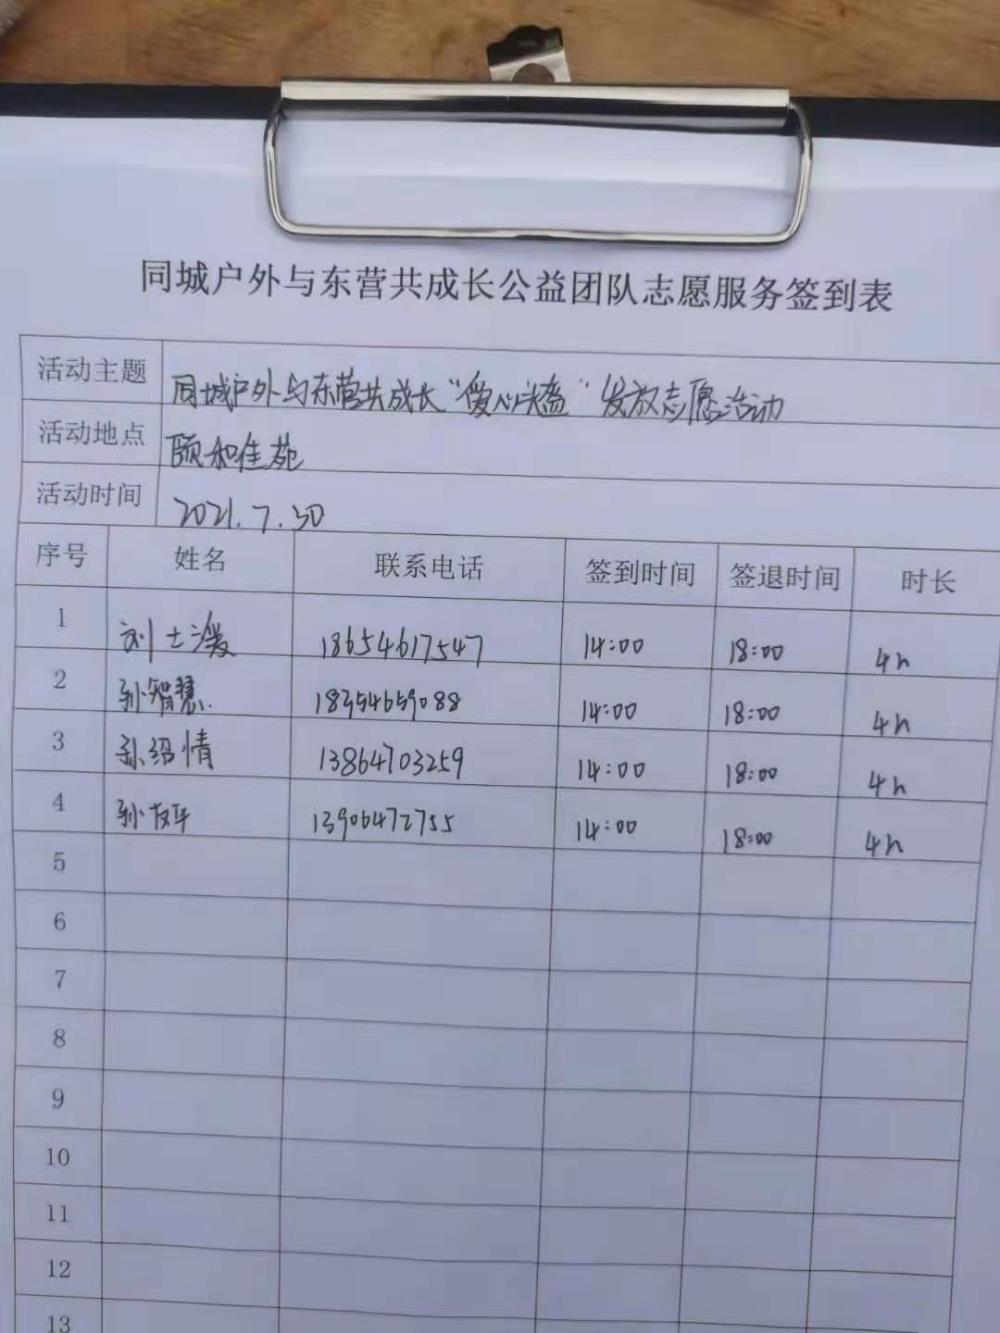 同城户外与东营共成长公益团队志愿服务签到表
活动主题 同城户外与东营共成长“爱心头盔”发放志愿活动
活动地点 颐和佳苑
活动时间 2021.7.30
序号 姓名 联系电话 签到时间 签退时间 时长
1 刘士媛 18654617547 14:00 18:00 4h
2 孙智慧 18354659088 14:00 18:00 4h
3 孙绍情 13864703259 14:00 18:00 4h
4 孙 13906472755 14:00 18:00 4h
5
6
7
8
9
10
11
12
13